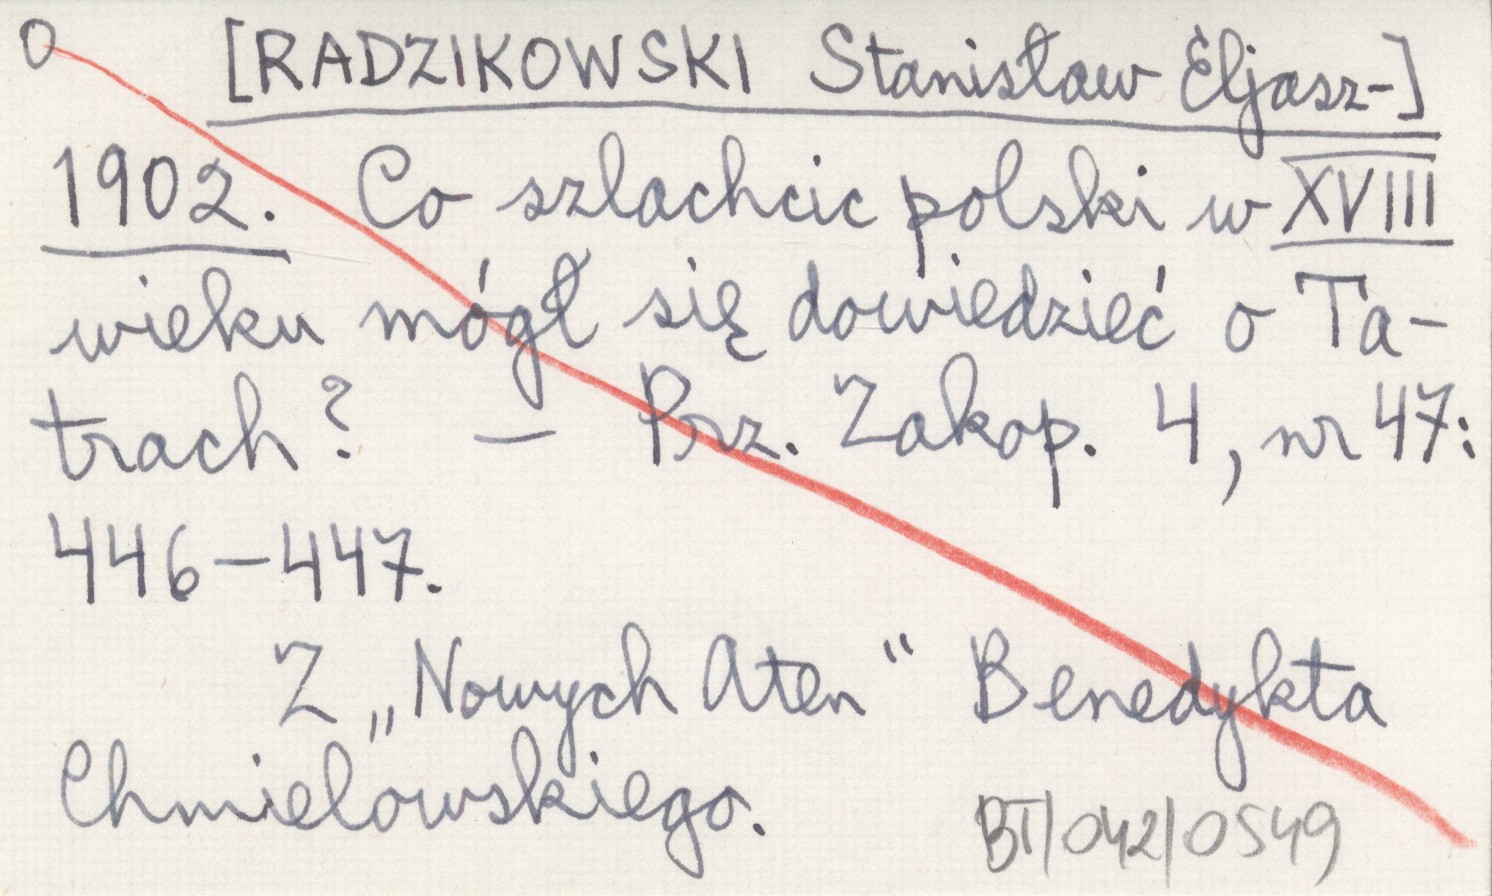 O [RADZIKOWSKI Stanisław Eljasz-]
1902. Co szlachcic polski w XVIII
wieku mógł się dowiedzieć o Ta-
trach? — Prz. Zakop. 4, nr 47:
446—447.
Z „Nowych Aten“ Benedykta
Chmielowskiego.
BT/042/0549